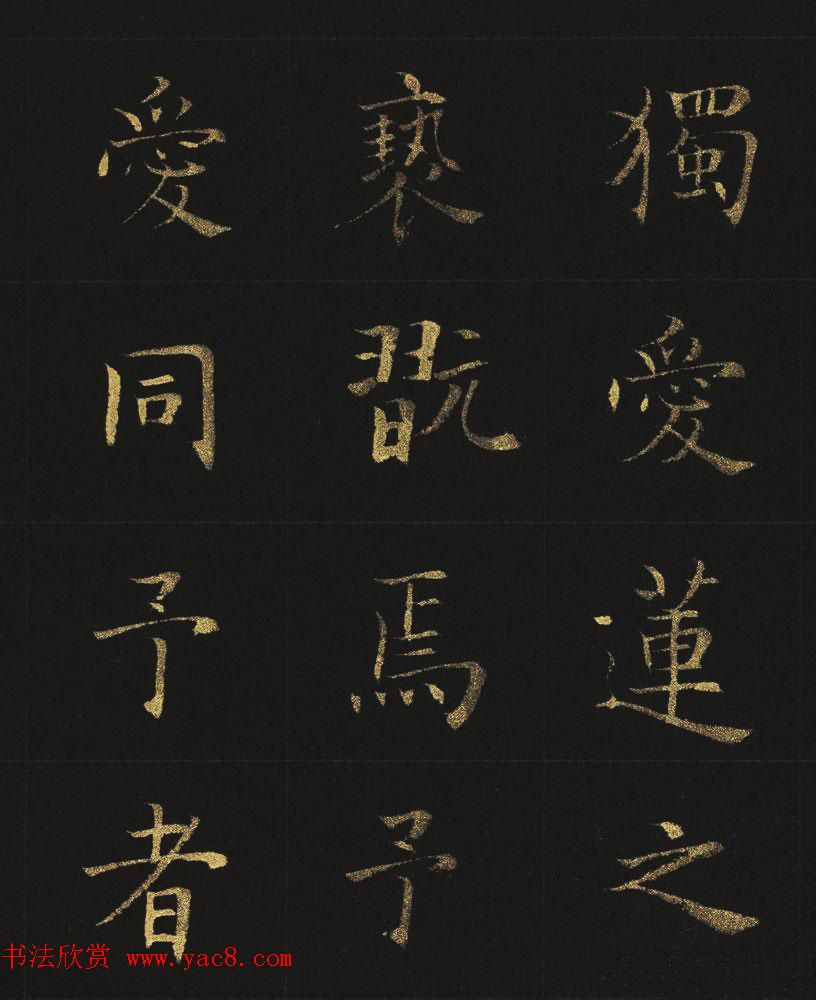 獨愛蓮之
褻翫焉予
愛同予者
书法欣赏 www.yac8.com